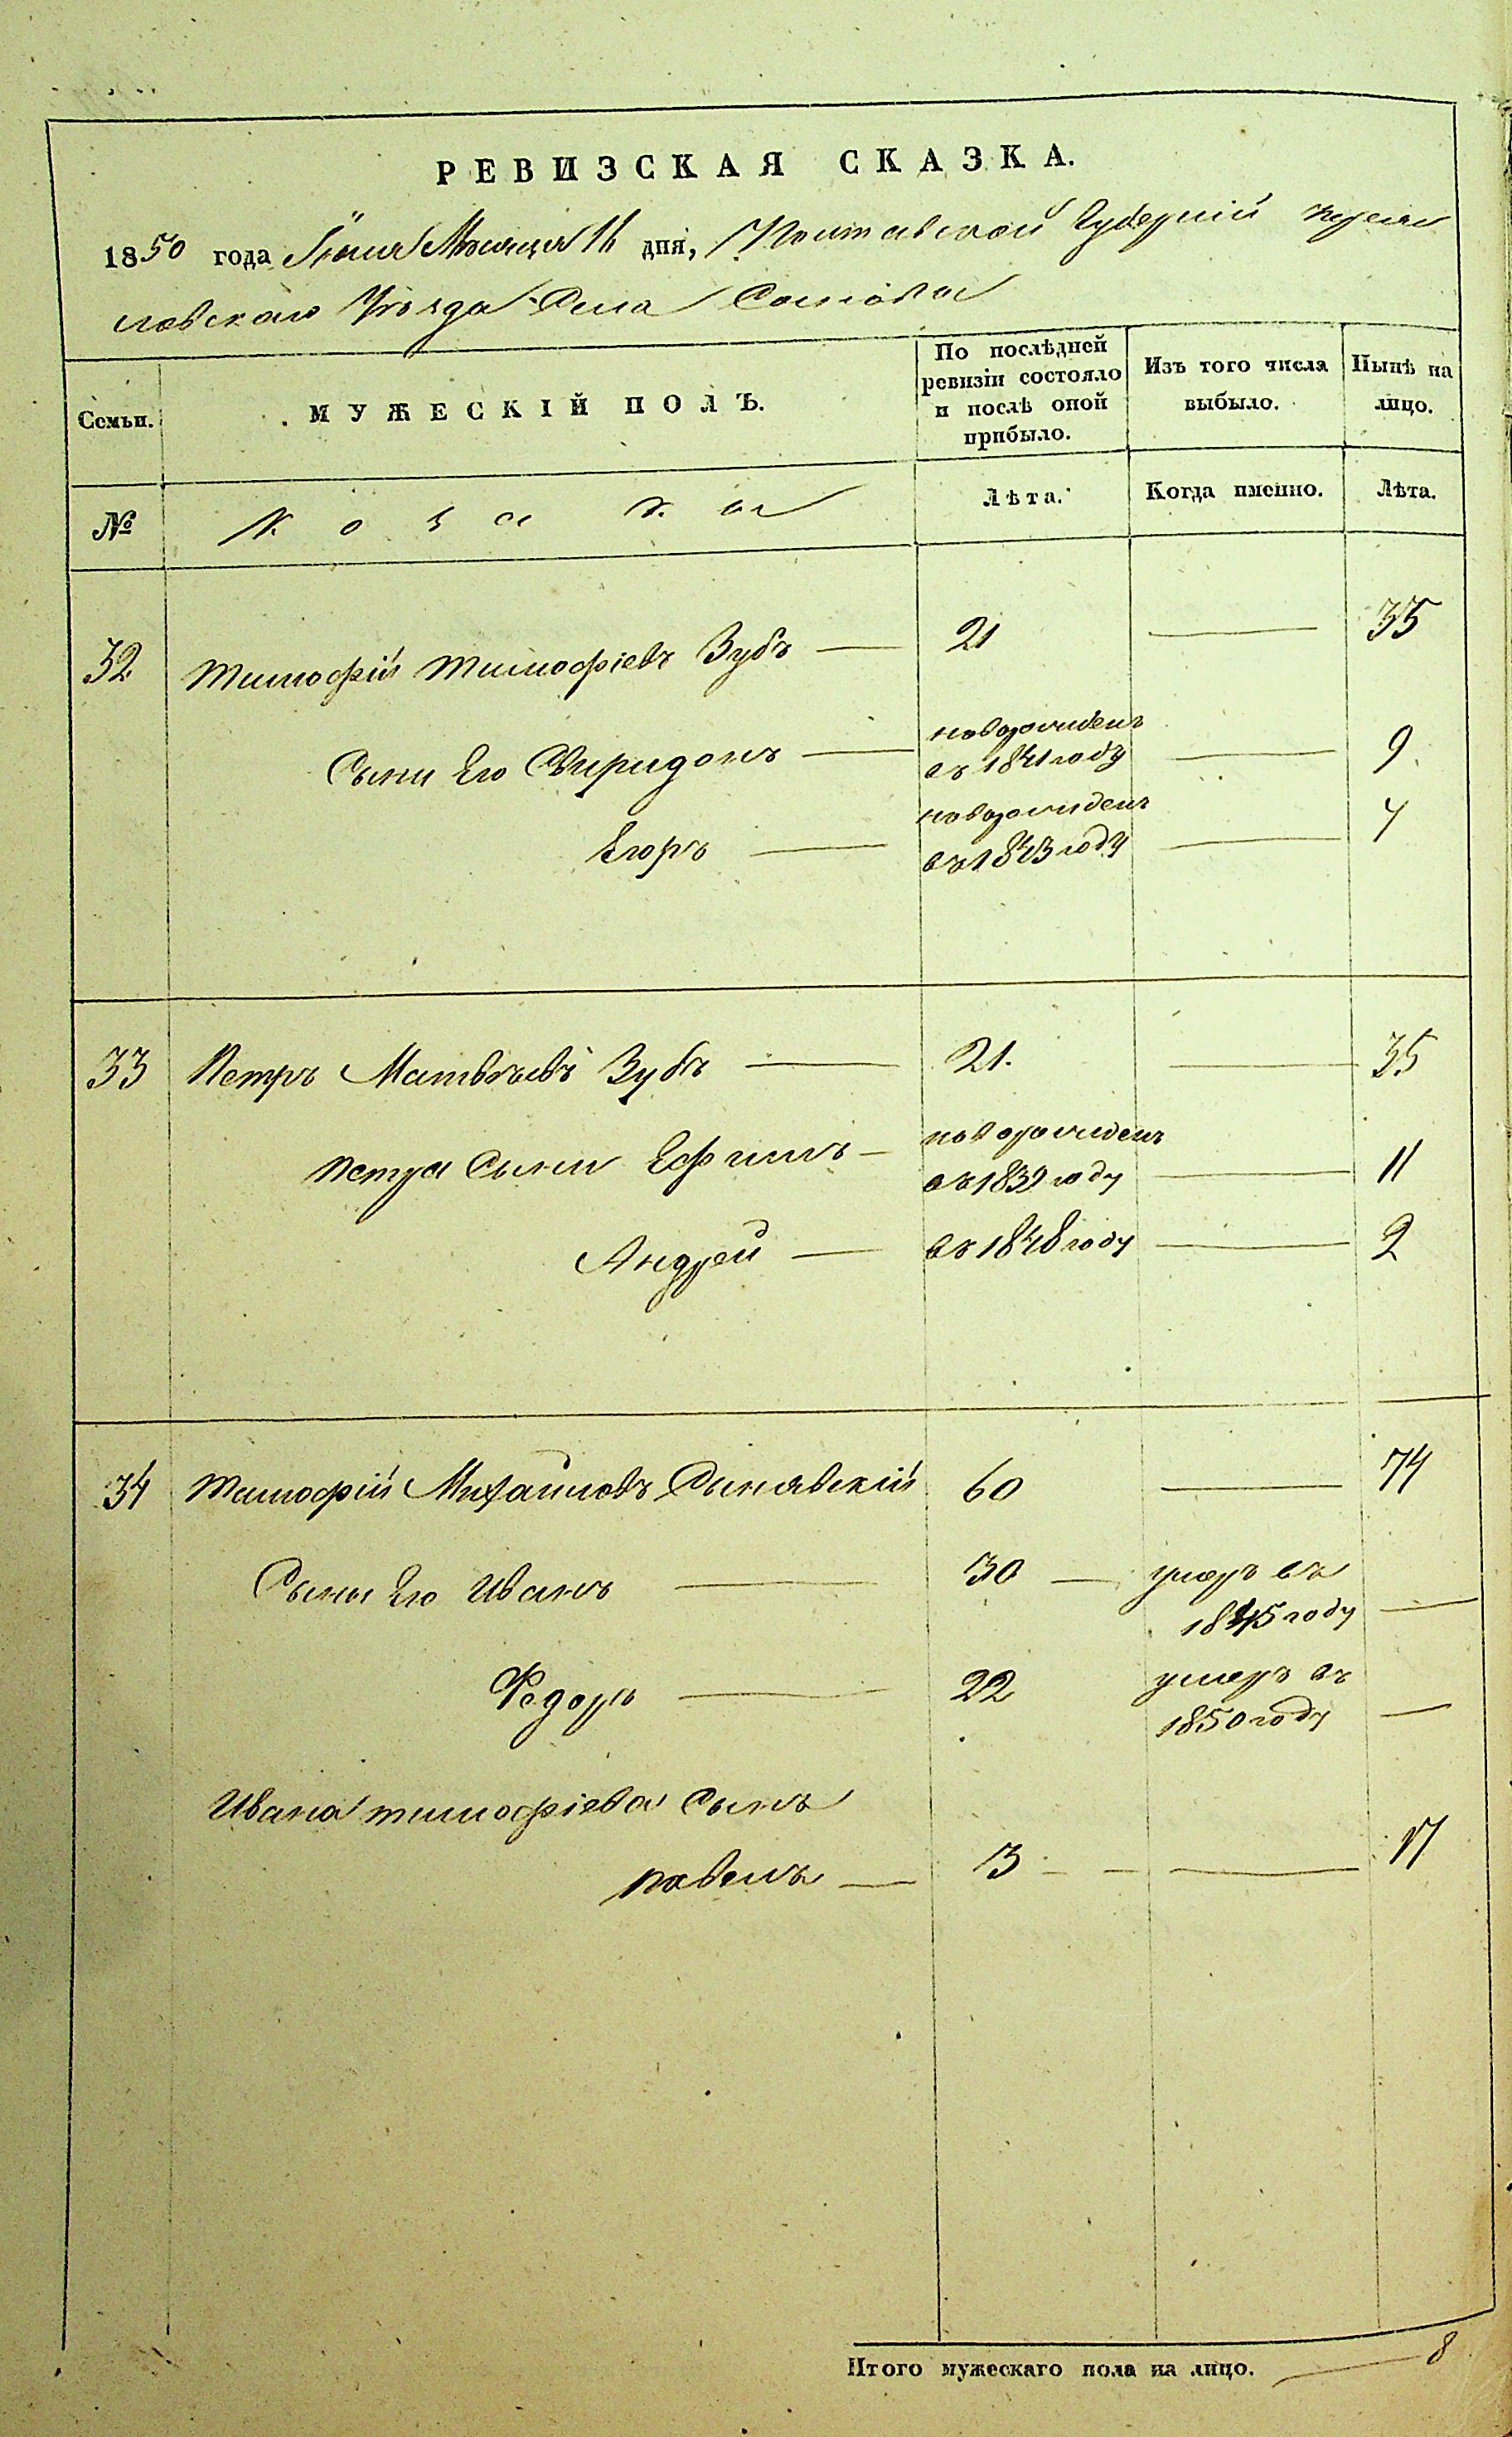 РЕВИЗСКАЯ СКАЗКА.
1850 года Июня Месяца 16 дня, Полтавской Губерніи переяс
лавскаго Уѣзда Села Сомковки
Семьи.
МУЖЕСКІЙ ПОЛЪ.
По послѣдней
ревизіи состояло
и послѣ оной
прибыло.
Изъ того числа
выбыло.
Нынѣ на
лицо.
№
Козаки
Лѣта.
Когда именно.
Лѣта.
32 Тимофій Тимофіевъ Зубъ — 21 — 35
Сыни Его Свиридонъ — новорожденъ
въ 1841 году — 9
Егоръ — новорожденъ
въ 1843 году — 7
33 Петръ Матвѣевъ Зубъ — 21. — 35
Петра Сыни Ефимъ — новорожденъ
въ 1839 году — 11
Андрей — въ 1848 году — 2
34 Тимофій Михайловъ Сынявскій 60 — 74
Сыны Его Иванъ — 30 — умеръ въ
1845 году —
Федоръ — 22 умеръ въ
1850 году —
Ивана тимофіева Сынъ
павелъ — 13 — — 17
Итого мужескаго пола на лицо. — 8